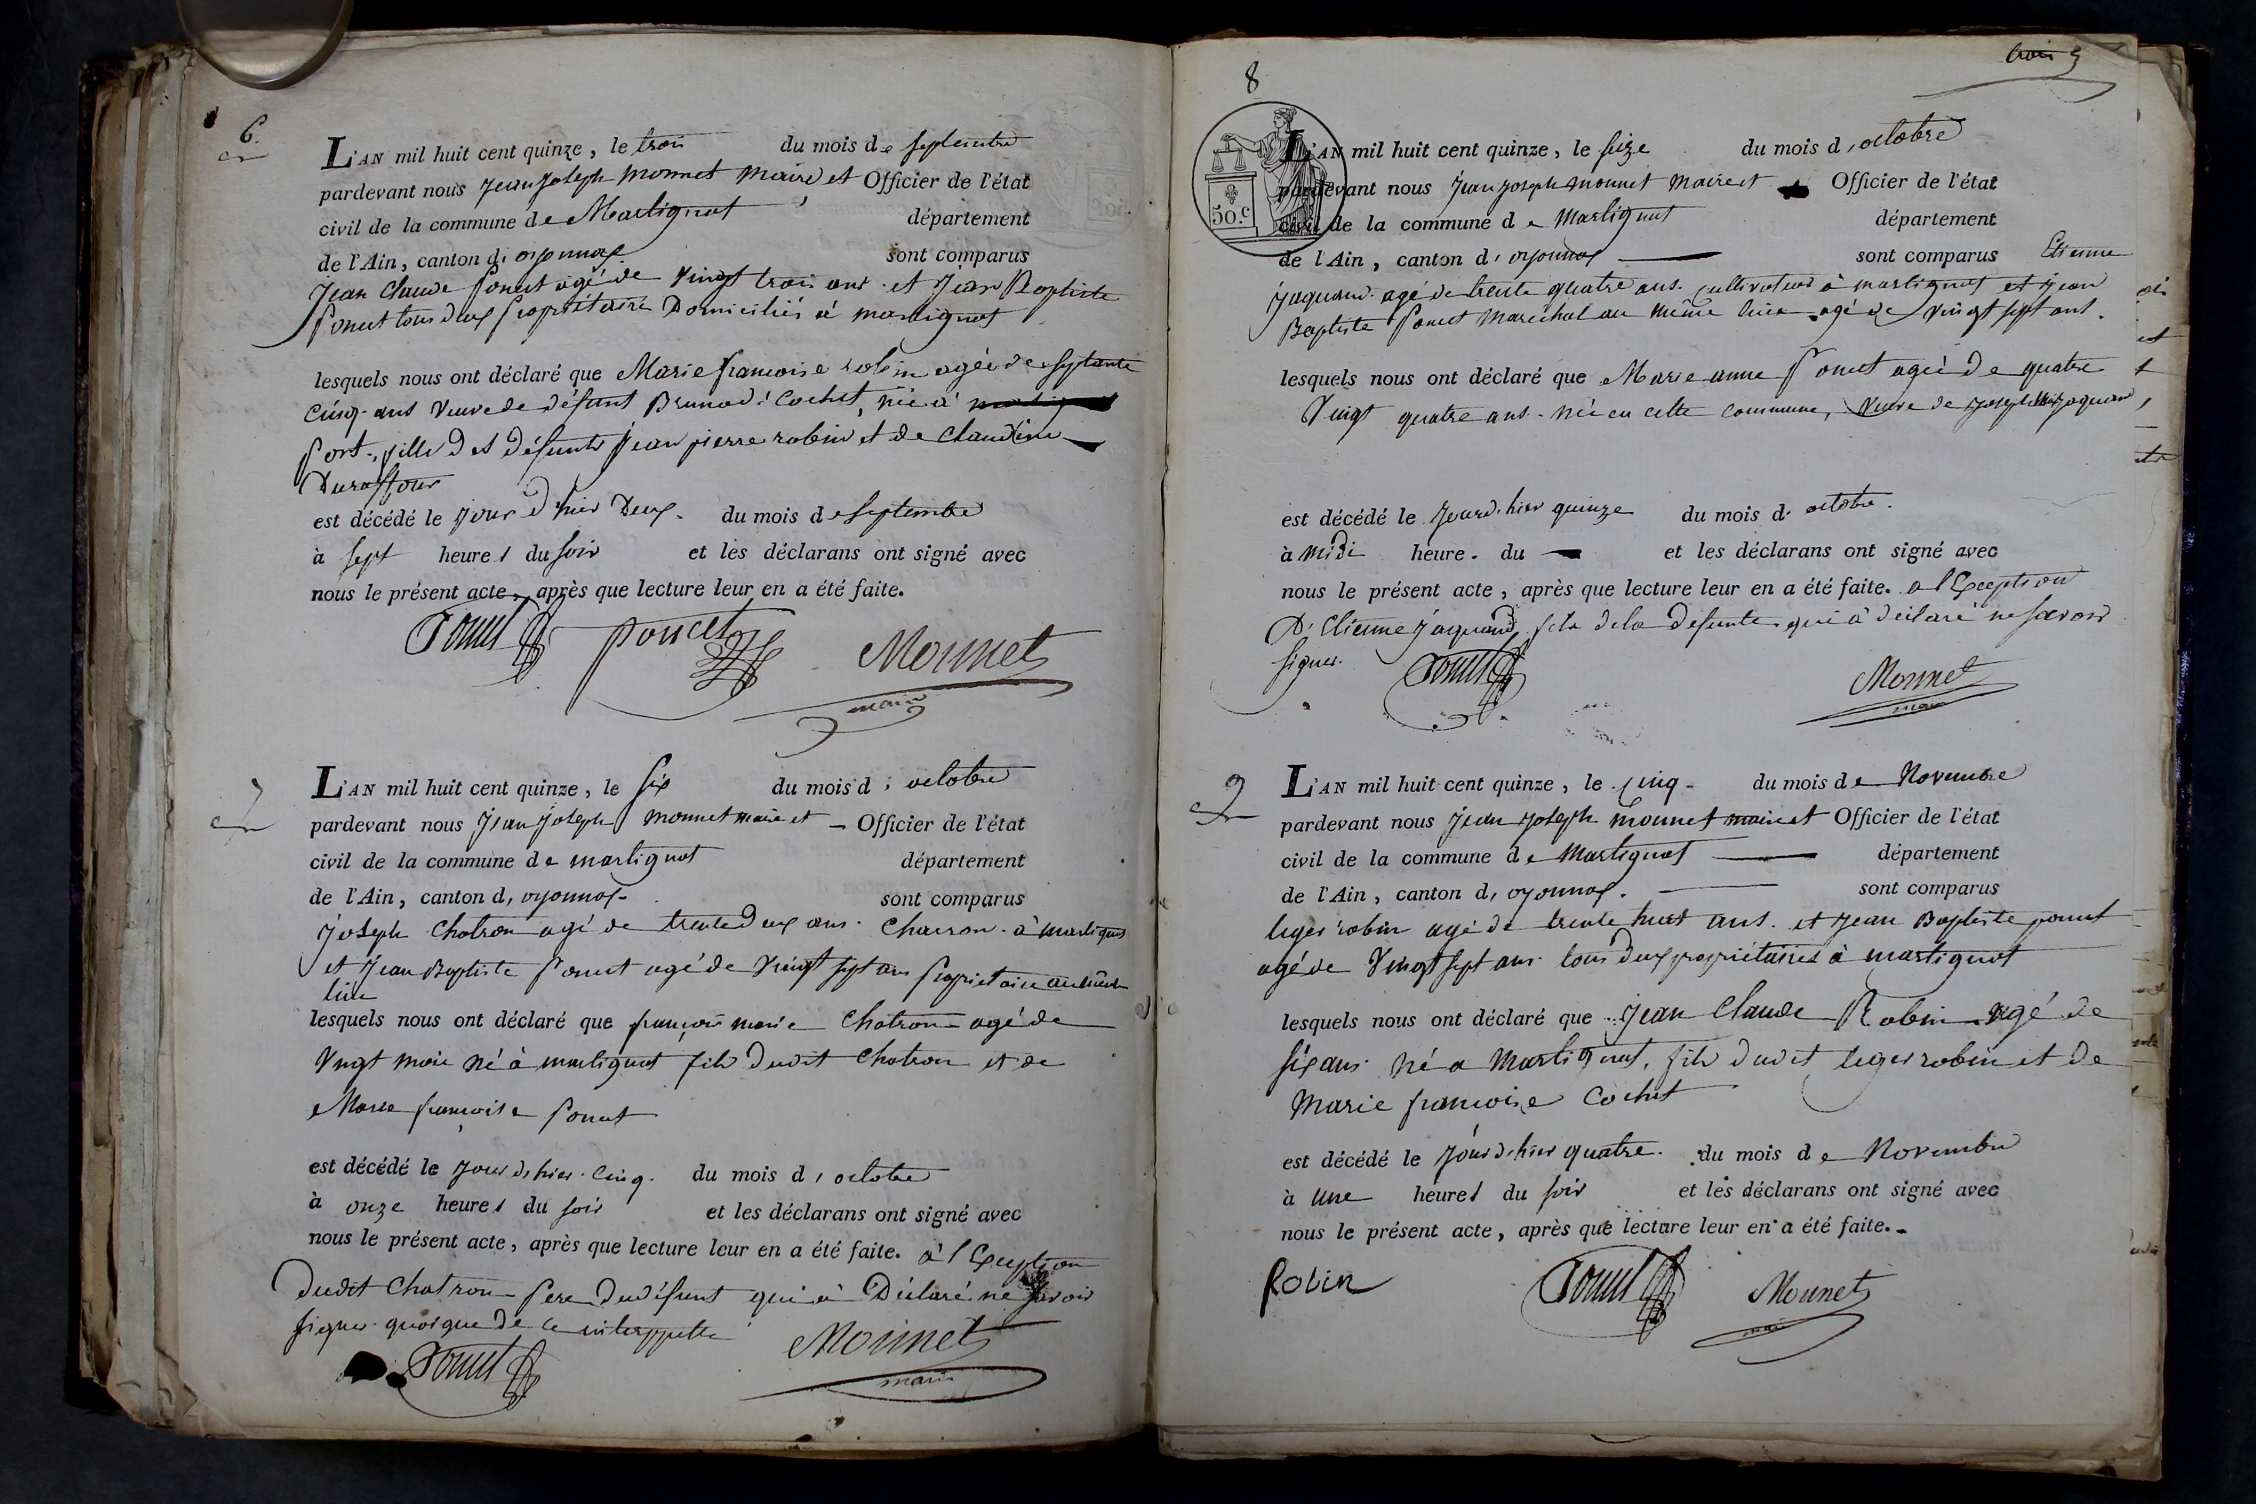 6.
L'AN mil huit cent quinze, le trois du mois de septembre
pardevant nous Jean Joseph Monnet Maire et Officier de l'état
civil de la commune de Martignat département
de l'Ain, canton d'oyonnax sont comparus
Jean Claude Poncet agé de vingt trois ans et Jean Baptiste
Poncet tous deux propriétaires Domiciliés à martignat
lesquels nous ont déclaré que Marie françoise robin agée de septante
cinq ans veuve de défunt Bruno Cochet, née à
Port, fille des défunts Jean pierre robin et de Claudine
Duraffour
est décédé le jour d'hier Deux du mois de septembre
à sept heures du soir et les déclarans ont signé avec
nous le présent acte, après que lecture leur en a été faite.
Poncet poncet Monnet
maire
7
L'AN mil huit cent quinze, le six du mois d'octobre
pardevant nous Jean Joseph Monnet maire et Officier de l'état
civil de la commune de martignat département
de l'Ain, canton d'oyonnax sont comparus
Joseph Chatron agé de trente deux ans charron à martignat
et Jean Baptiste Poncet agé de vingt sept ans propriétaire au même
lieu
lesquels nous ont déclaré que françois marie Chatron agé de
vingt mois né à martignat fils dudit Chatron et de
Marie françoise Poncet
est décédé le jour d'hier cinq du mois d'octobre
à onze heures du soir et les déclarans ont signé avec
nous le présent acte, après que lecture leur en a été faite. à l'exception
dudit Chatron Pere du défunt qui à Déclaré ne savoir
signer quoique de ce interppellé
Poncet Monnet
maire
trois
8
50.c
L'AN mil huit cent quinze, le seize du mois d'octobre
pardevant nous Jean Joseph Monnet Maire et Officier de l'état
civil de la commune de Martignat département
de l'Ain, canton d'oyonnax sont comparus Etienne
Jaquand agé de trente quatre ans cultivateur à martignat et Jean
Baptiste Poncet Maréchal au même lieu agé de vingt sept ans.
lesquels nous ont déclaré que Marie anne Poncet agée de quatre
vingt quatre ans née en cette commune, veuve de Joseph Jaquand
est décédé le jour d'hier quinze du mois d'octobre.
à midi heure du et les déclarans ont signé avec
nous le présent acte, après que lecture leur en a été faite. a l'exception
D'Etienne Jaquand fils de la defunte qui à déclaré ne savoir
signer.
Poncet Monnet
maire
9
L'AN mil huit cent quinze, le cinq du mois de Novembre
pardevant nous Jean Joseph Monnet maire et Officier de l'état
civil de la commune de Martignat département
de l'Ain, canton d'oyonnax. sont comparus
leger robin agé de trente huit ans et Jean Baptiste poncet
agé de vingt sept ans tous deux propriétaires à martignat
lesquels nous ont déclaré que Jean Claude Robin agé de
six ans né a Martignat, fils dudit leger robin et de
Marie françoise Cochet
est décédé le jour d'hier quatre du mois de Novembre
à une heures du soir et les déclarans ont signé avec
nous le présent acte, après que lecture leur en a été faite.
Robin Poncet Monnet
maire